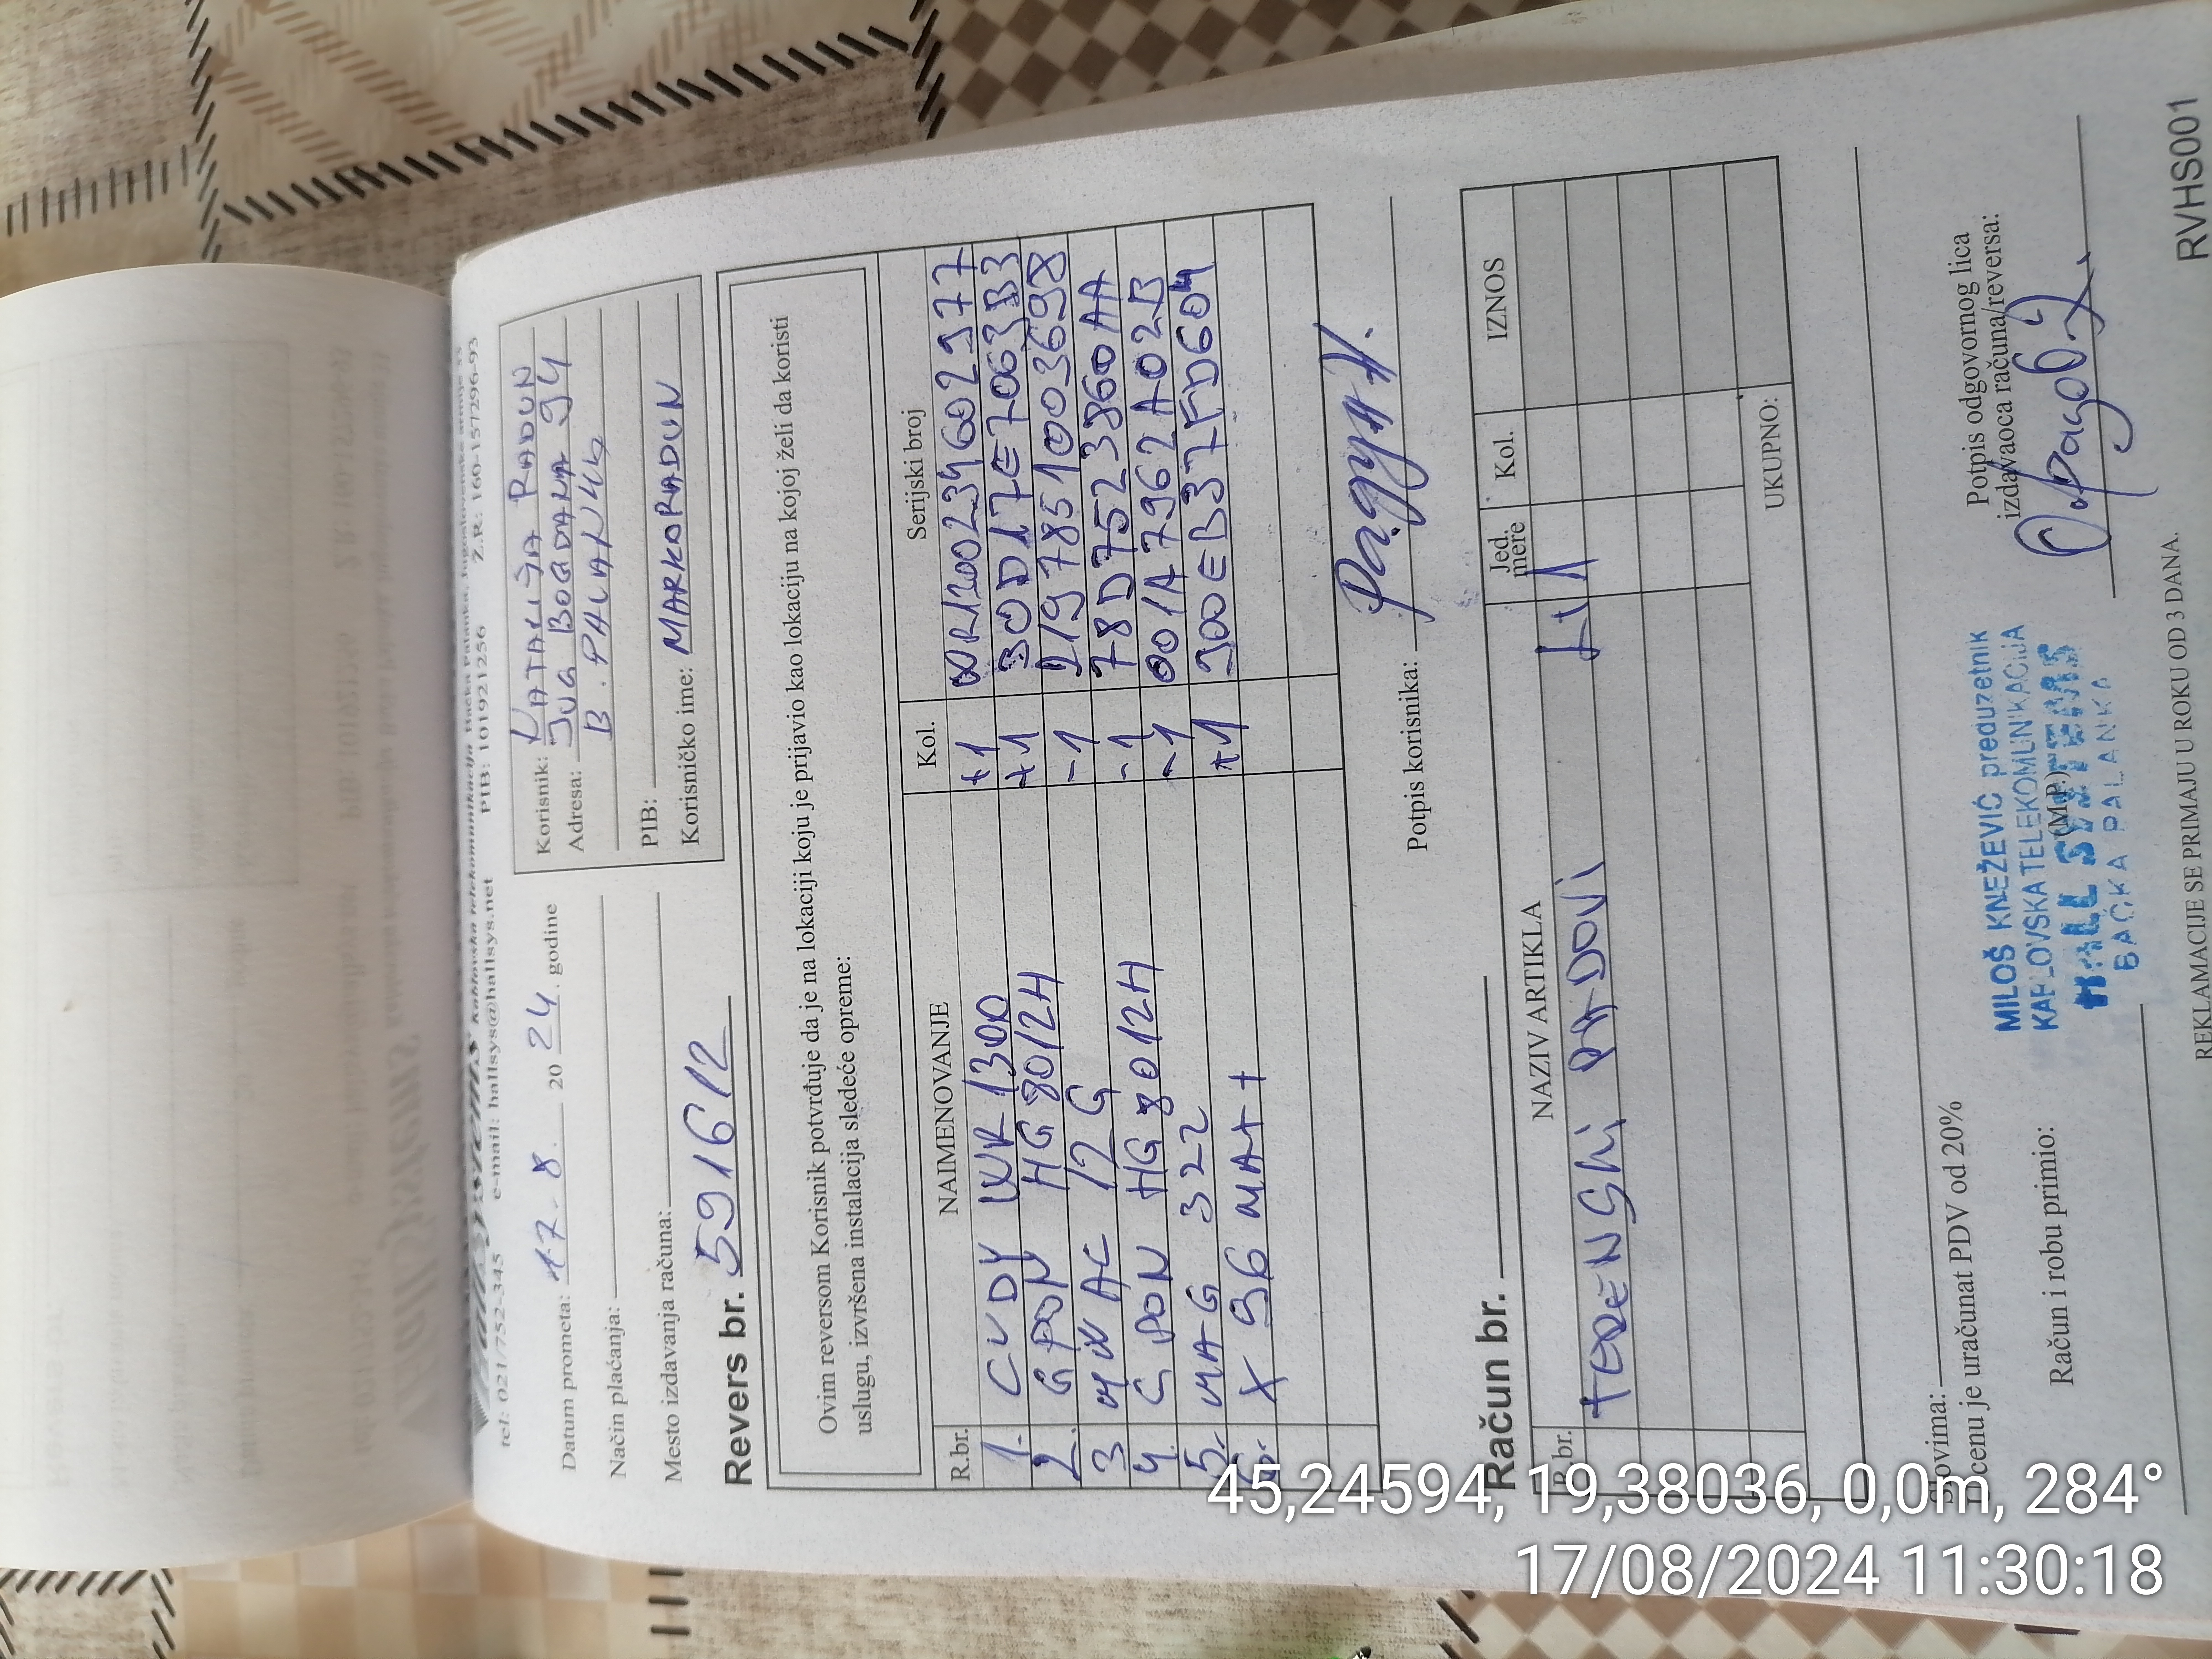 Hall Systems kablovska telekomunikacija Bačka Palanka,
tel: 021/752-345 e-mail: hallsys@hallsys.net PIB: 101921256 Ž.R.: 160-157296-93
Datum prometa: 17.8. 2024. godine
Način plaćanja:
Mesto izdavanja računa:
Korisnik: NATALIJA RADUN
Adresa: JUG BOGDANA 94
B. PALANKA
PIB:
Korisničko ime: MARKORADUN
Revers br. 591612
Ovim reversom Korisnik potvrđuje da je na lokaciji koju je prijavio kao lokaciju na kojoj želi da koristi
uslugu, izvršena instalacija sledeće opreme:
R.br. NAIMENOVANJE Kol. Serijski broj
1. CUDY WR 1300 +1 WR1300234602977
2. GPON HG 8012H +1 30D17E7063B3
3 12G -1 2197851003698
4 GPON HG 8012H -1 78D7523860AA
5. MAG 322 -1 001A7962A02B
6. X 96 MAX+ +1 900EB37FD604
Potpis korisnika:
Račun br.
R.br. NAZIV ARTIKLA Jed. mere Kol. IZNOS
TERENSKI RADOVI
UKUPNO:
Slovima:
U cenu je uračunat PDV od 20%
Račun i robu primio:
(M.P.)
MILOŠ KNEŽEVIĆ preduzetnik
KABLOVSKA TELEKOMUNIKACIJA
HALL SYSTEMS
BAČKA PALANKA
Potpis odgovornog lica
izdavaoca računa/reversa:
REKLAMACIJE SE PRIMAJU U ROKU OD 3 DANA.
RVHS001
45,24594, 19,38036, 0,0m, 284°
17/08/2024 11:30:18